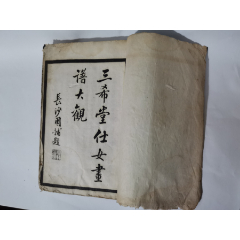 三希堂仕女畫
譜大觀
長沙題